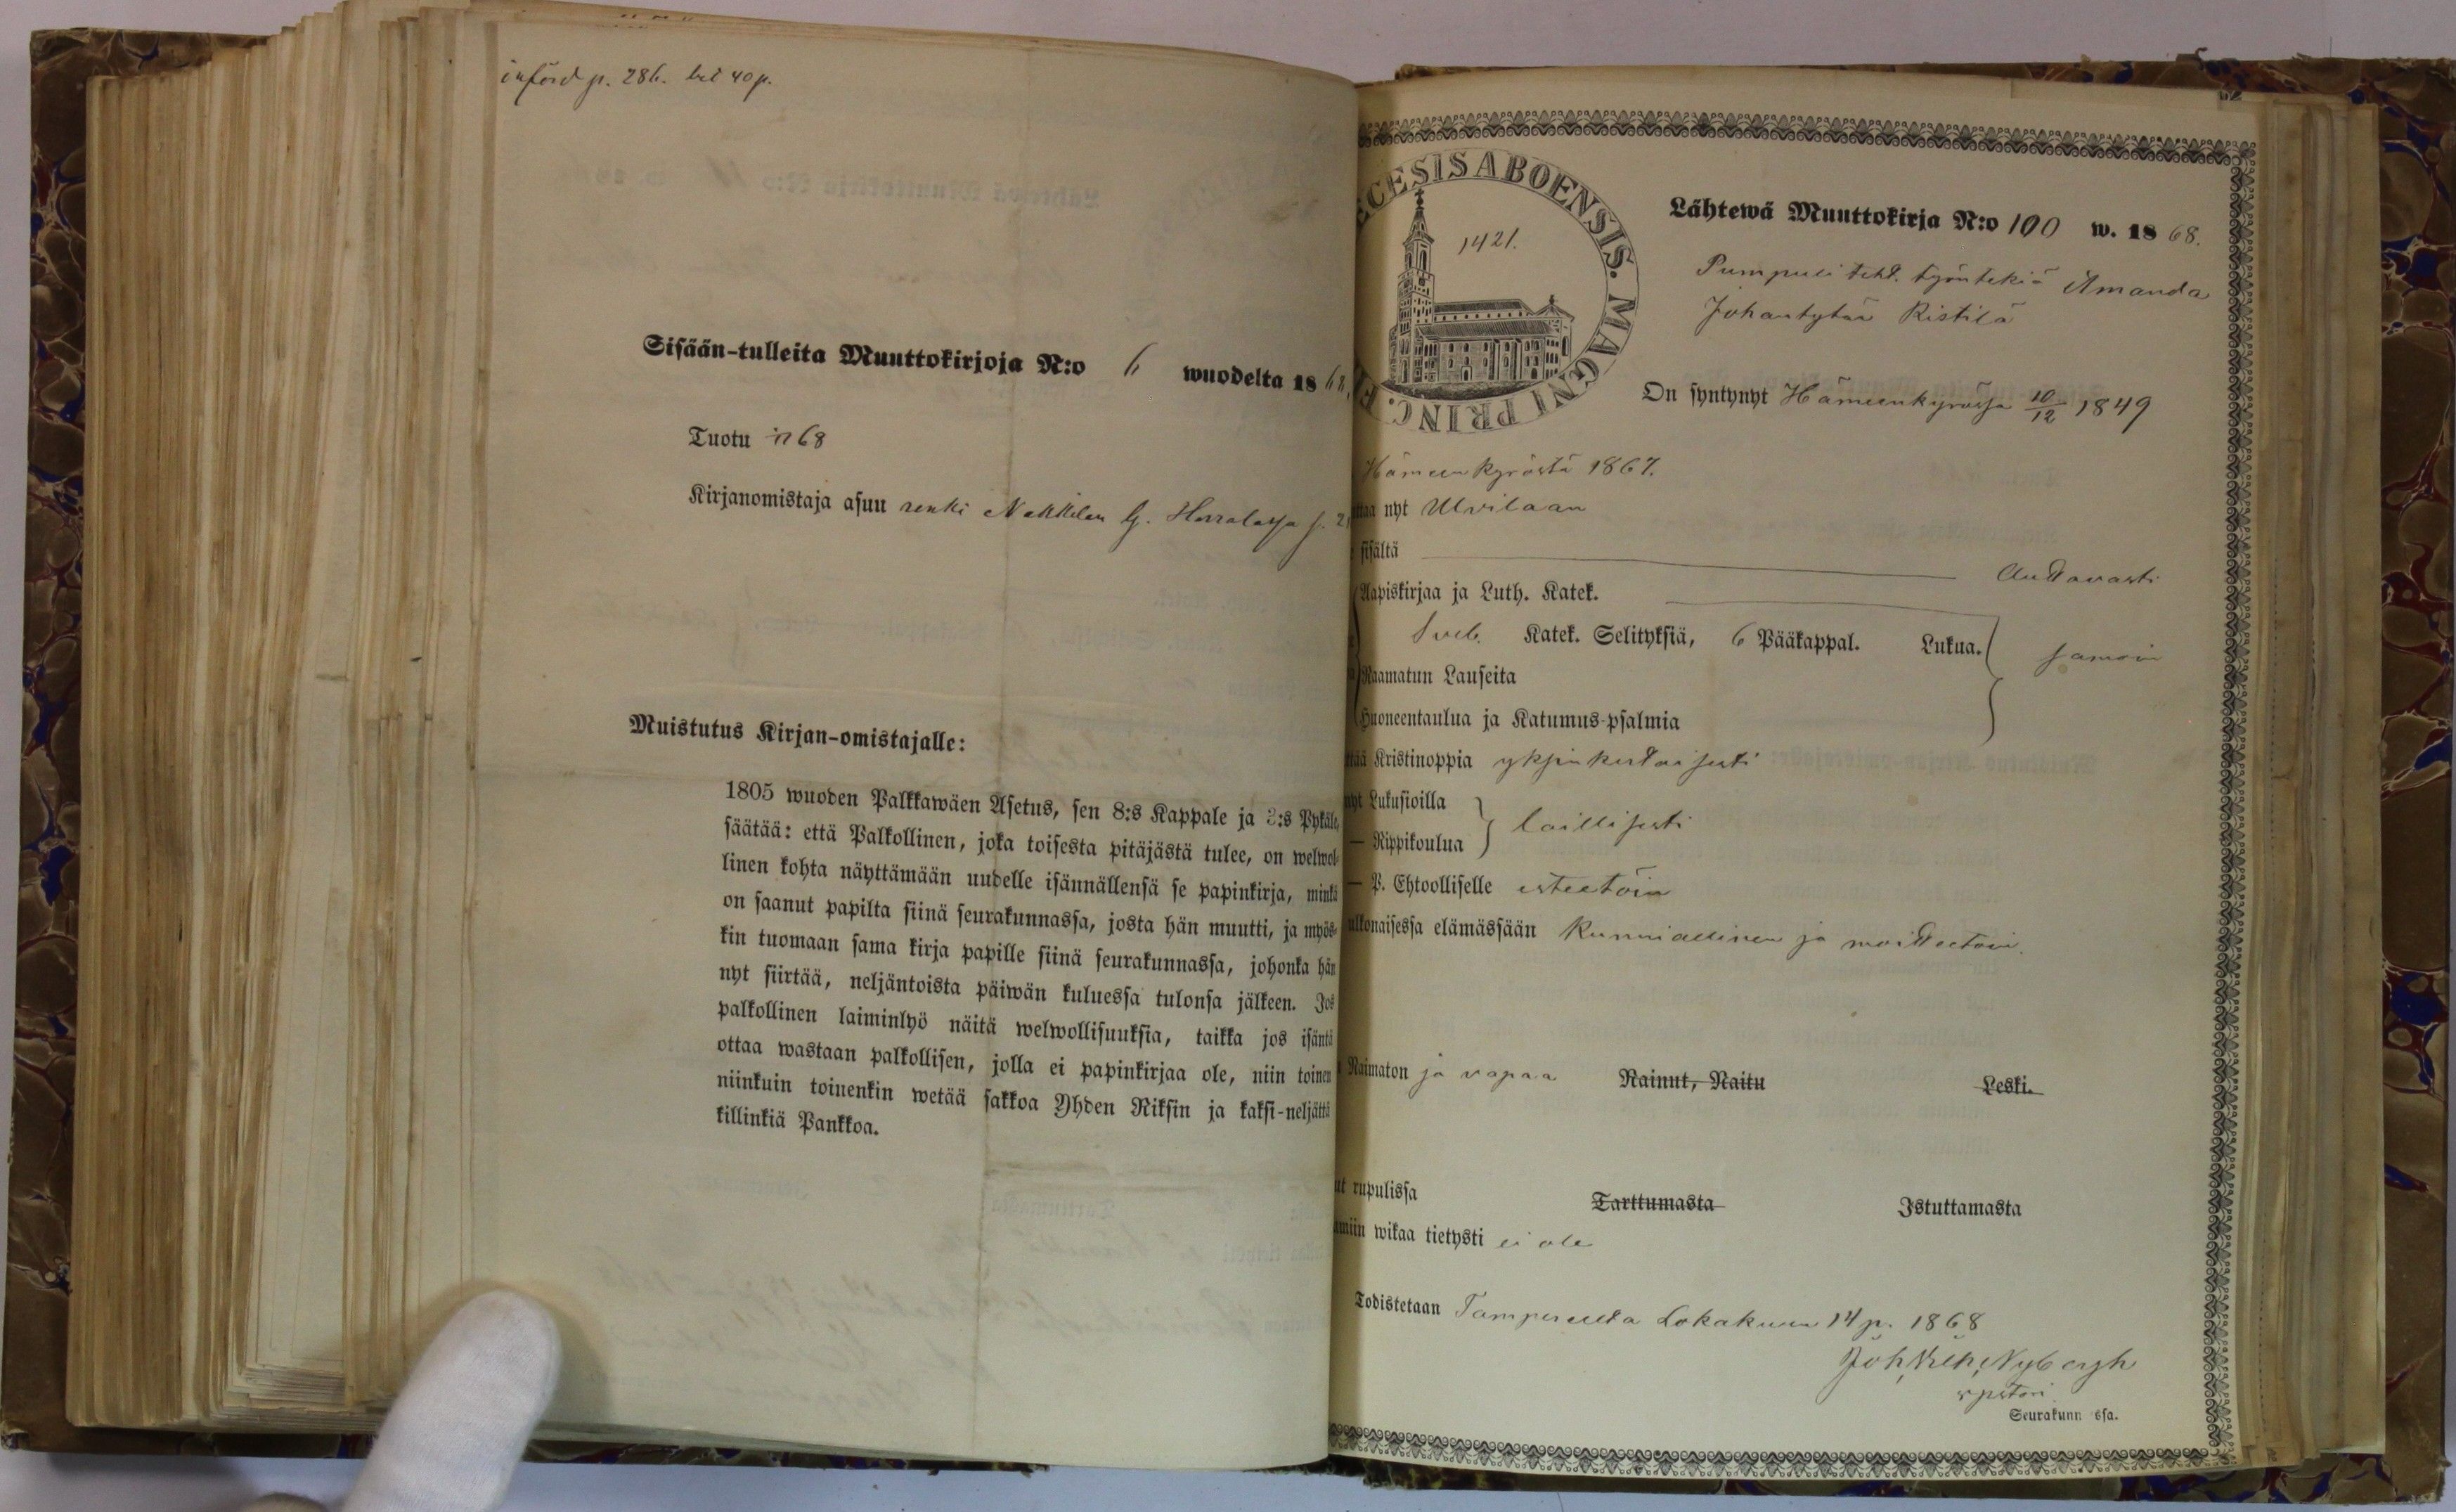 införd p. 286. bet 40 p.
Sisään-tulleita Muuttokirjoja N:o 6 wuodelta 1868,
Tuotu 68
Kirjanomistaja asuu renki Nakkilan
Muistutus Kirjan-omistajalle:
1805 wuoden Palkkawäen Asetus, sen 8:s Kappale ja 3:s Pykälä,
säätää: että Palkollinen, joka toisesta pitäjästä tulee, on welwol-
linen kohta näyttämään uudelle isännällensä se papinkirja, minkä
on saanut papilta siinä seurakunnassa, josta hän muutti, ja myös-
kin tuomaan sama kirja papille siinä seurakunnassa, johonka hän
nyt siirtää, neljäntoista päiwän kuluessa tulonsa jälkeen. Jos
palkollinen laiminlyö näitä welwollisuuksia, taikka jos isäntä
ottaa wastaan palkollisen, jolla ei papinkirjaa ole, niin toinen
niinkuin toinenkin wetää sakkoa Yhden Riksin ja kaksi-neljättä
killinkiä Pankkoa.
ECESIS ABOENSIS. MAGNI PRINC. F
1421.
Lähtewä Muuttokirja N:o 100 w. 1868.
Pumpuli teht. työntekiä Amanda
Johantytär Ristilä
On syntynyt Hämeenkyrössä 10/12 1849
Hämeenkyröstä 1867.
taa nyt Ulvilaan
sisältä Auttavasti
Aapiskirjaa ja Luth. Katek.
Sveb. Katek. Selityksiä, 6 Pääkappal. Lukua. samoin
Raamatun Lauseita
Huoneentaulua ja Katumus-psalmia
ttää Kristinoppia yksinkertaisesti
nyt Lukusioilla
— Rippikoulua laillisesti
— P. Ehtoolliselle esteetöin
ulkonaisessa elämässään Kunniallinen ja moitteetoin.
Naimaton ja vapaa Nainut, Naitu Leski.
ut rupulissa Tarttumasta Istuttamasta
miin wikaa tietysti ei ole
Todistetaan Tampereelta Lokakuun 14 p. 1868
Joh. Nybergh
Seurakunn ssa.